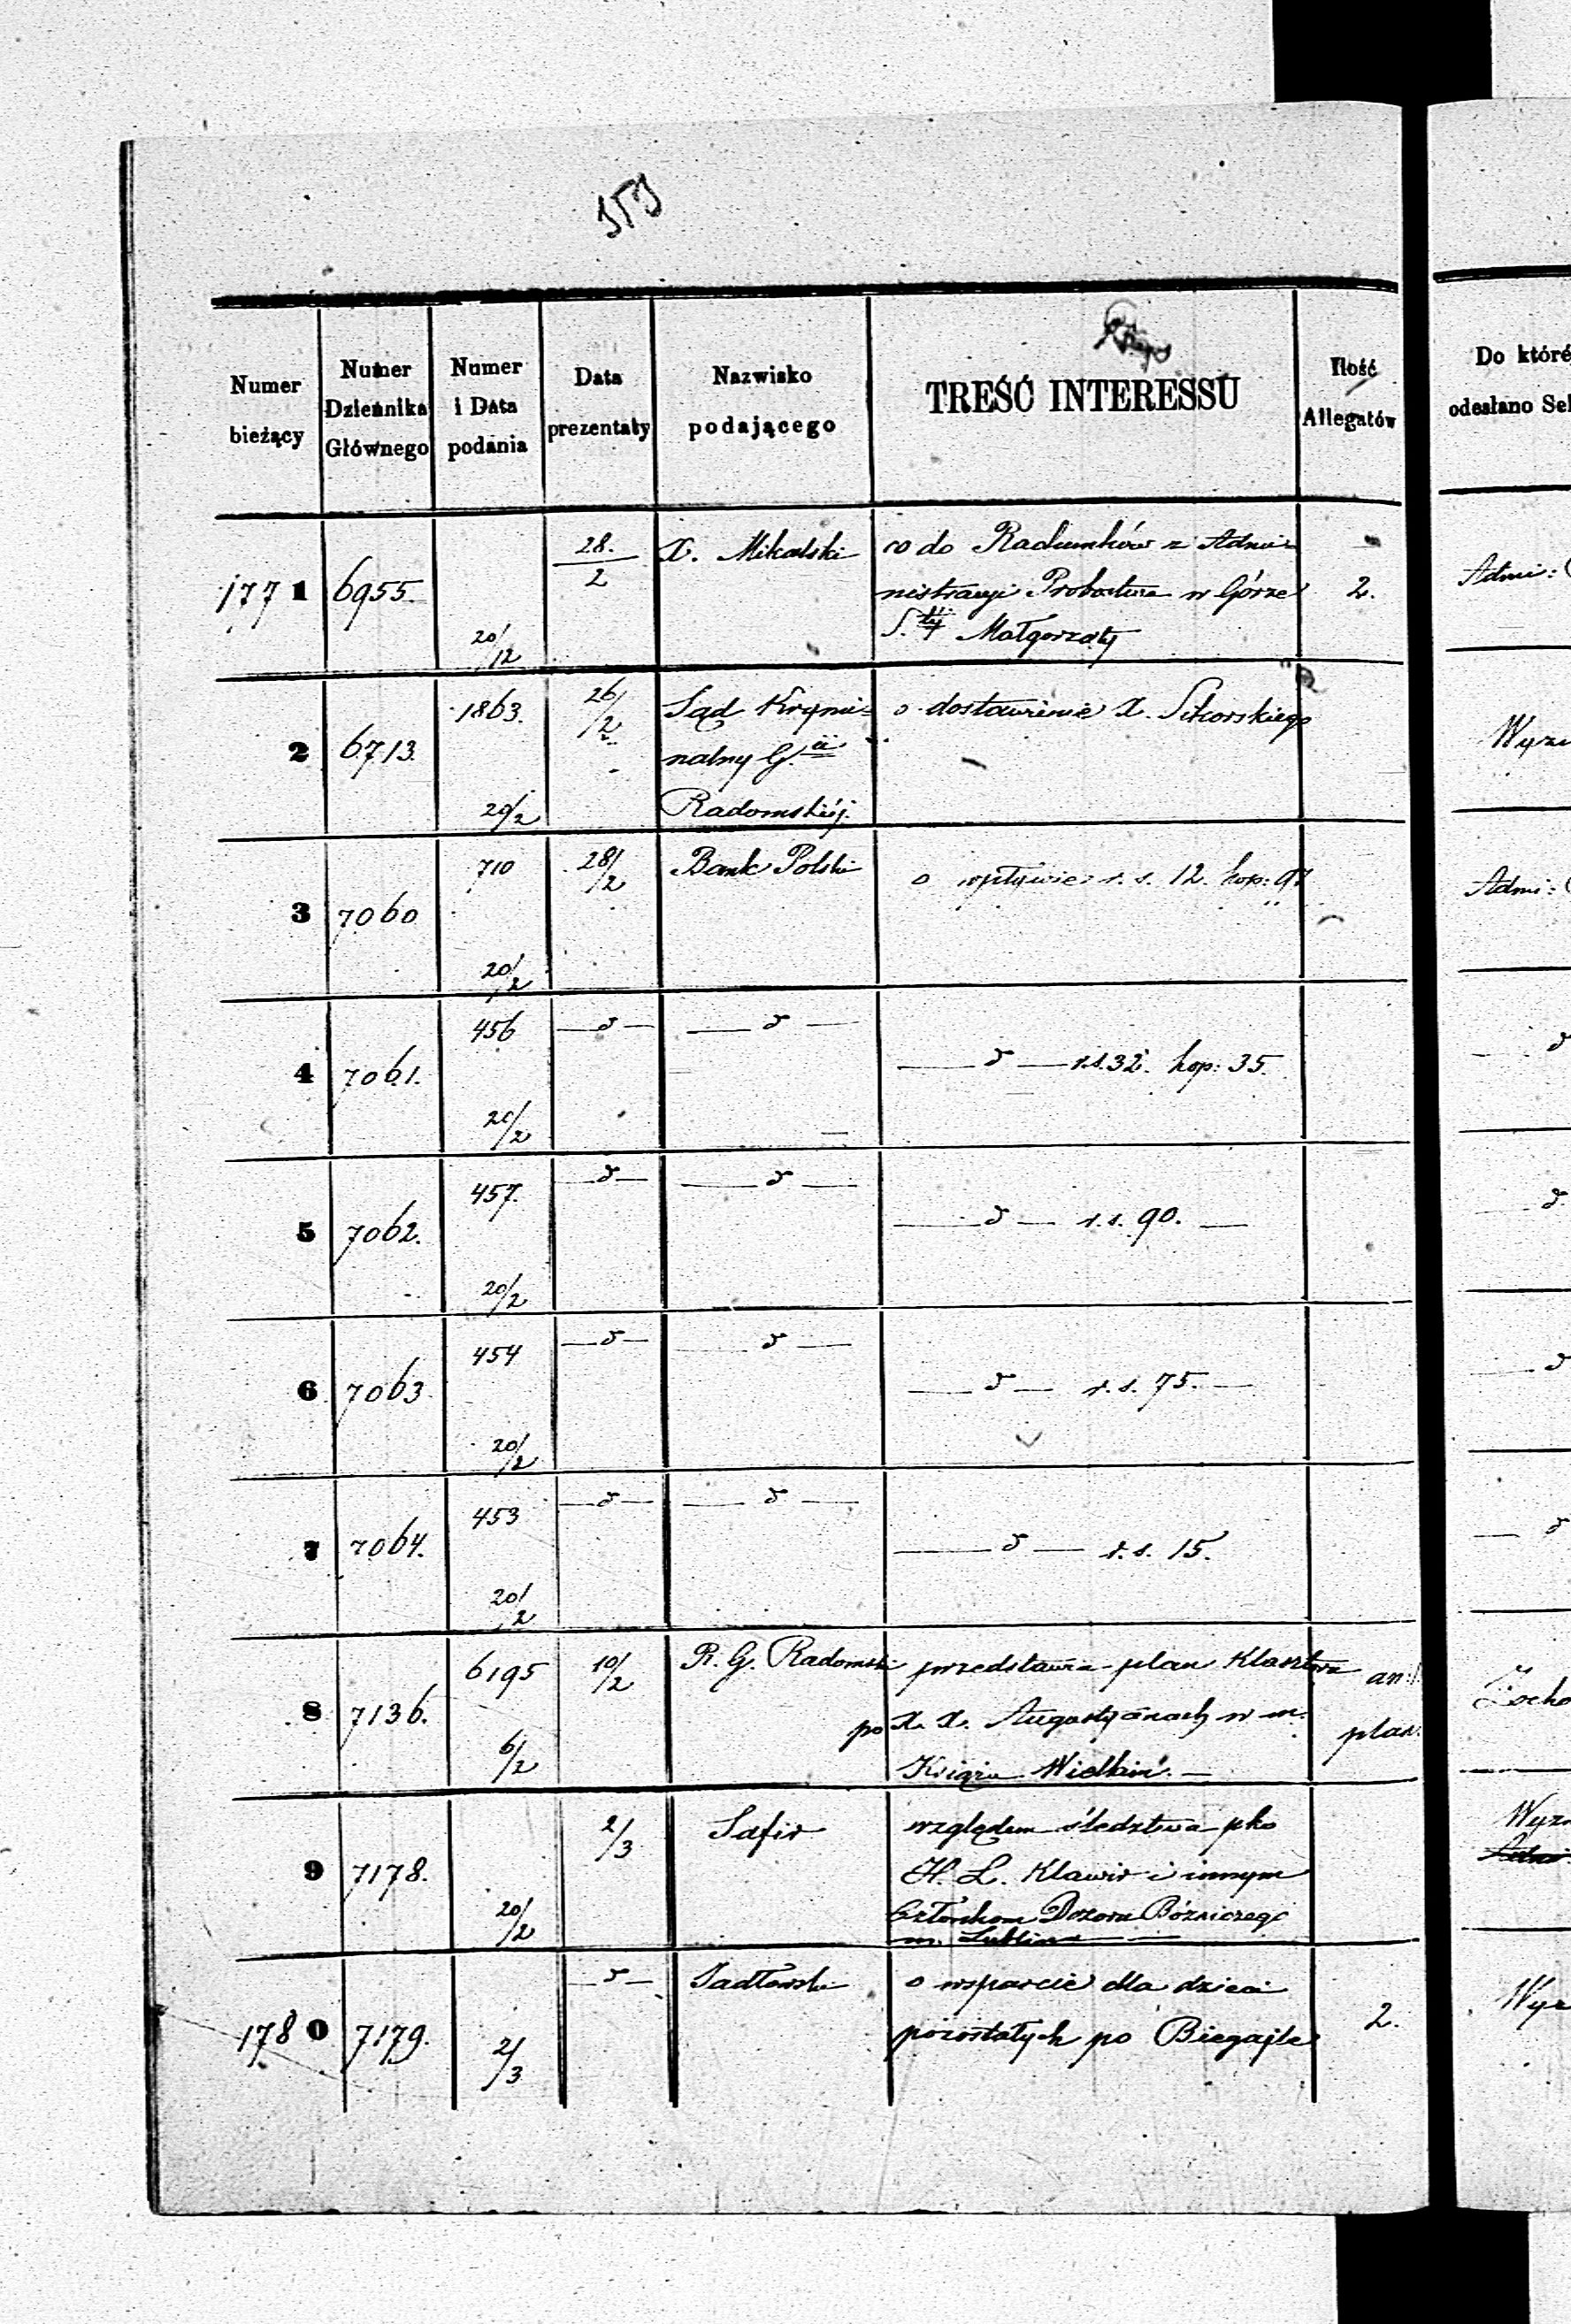 Numer bieżący
Numer Dziennika Głównego
Numer i Data podania
Data prezentaty
Nazwisko podającego
TREŚĆ INTERESSU
Ilość Allegatów
Do któré
odesłano Sek
1771 6955. 20/12 28./2 X. Mikalski co do Rachunków z Admi=
nistracyi Probostwa w Górze 2. Admi:
S.téj Małgorzaty
2 6713. 1863. 20/2 26/2 Sąd Krymi= o dostawienie X. Sikorskiego
nalny G.ii
Radomskiéj.
3 7060 710 20/2 28/2 Bank Polski o wpływie r. s. 12. kop: 97 Admi:
4 7061. 456 20/2 — d — — d — — d — r.s. 32. kop: 35. d
5 7062. 457. 20/2 — d — — d — — d — r.s. 90. — d.
6 7063 454 20/2 — d — — d — — d — r. s. 75. — d
7 7064. 453 20/2 — d — — d — — d — r. s. 15. d
8 7136. 6195 6/2 10/2 R. G. Radomski przedstawia plan Klasztoru
po X. X. Augustyanach w m. plan.
Książu Wielkim. —
9 7178. 20/2 2/3 Safir względem śledztwa pko
H. L. Klawir i innym
Członkom Dozoru Bóżniczego
m. Lublina
1780 7179. 2/3 — d — Sadłowski o wsparcie dla dzieci
pozostałych po Biegajle 2.